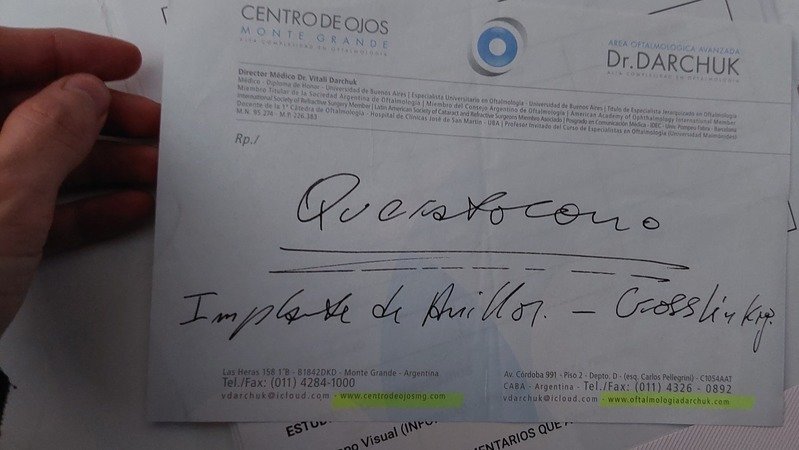 CENTRO DE OJOS
MONTE GRANDE
ALTA COMPLEJIDAD EN OFTALMOLOGÍA
AREA OFTALMOLOGICA AVANZADA
Dr. DARCHUK
ALTA COMPLEJIDAD EN OFTALMOLOGIA
Director Médico Dr. Vitali Darchuk
Médico - Diploma de Honor - Universidad de Buenos Aires | Especialista Universitario en Oftalmología - Universidad de Buenos Aires | Título de Especialista Jerarquizado en Oftalmología
Miembro Titular de la Sociedad Argentina de Oftalmología | Miembro del Consejo Argentino de Oftalmología | American Academy of Ophthalmology International Member
International Society of Refractive Surgery Member | Latin American Society of Cataract and Refractive Surgeons Miembro Asociado | Posgrado en Comunicación Médica - IDEC - Univ. Pompeu Fabra - Barcelona
Docente de la 1º Cátedra de Oftalmología - Hospital de Clínicas José de San Martín - UBA | Profesor Invitado del Curso de Especialistas en Oftalmología (Universidad Maimónides)
M.N. 95.274 - M.P. 226.383
Rp./
Queratocono
Implante de Anillos. - Crosslinking.
Las Heras 158 1ºB - B1842DKD - Monte Grande - Argentina
Tel./Fax: (011) 4284-1000
vdarchuk@icloud.com - www.centrodeojosmg.com
Av. Córdoba 991 - Piso 2 - Depto. D - (esq. Carlos Pellegrini) - C1054AAT
CABA - Argentina - Tel./Fax: (011) 4326 - 0892
vdarchuk@icloud.com - www.oftalmologiadarchuk.com
ESTUD
po Visual (INFO
MENTARIOS QUE A